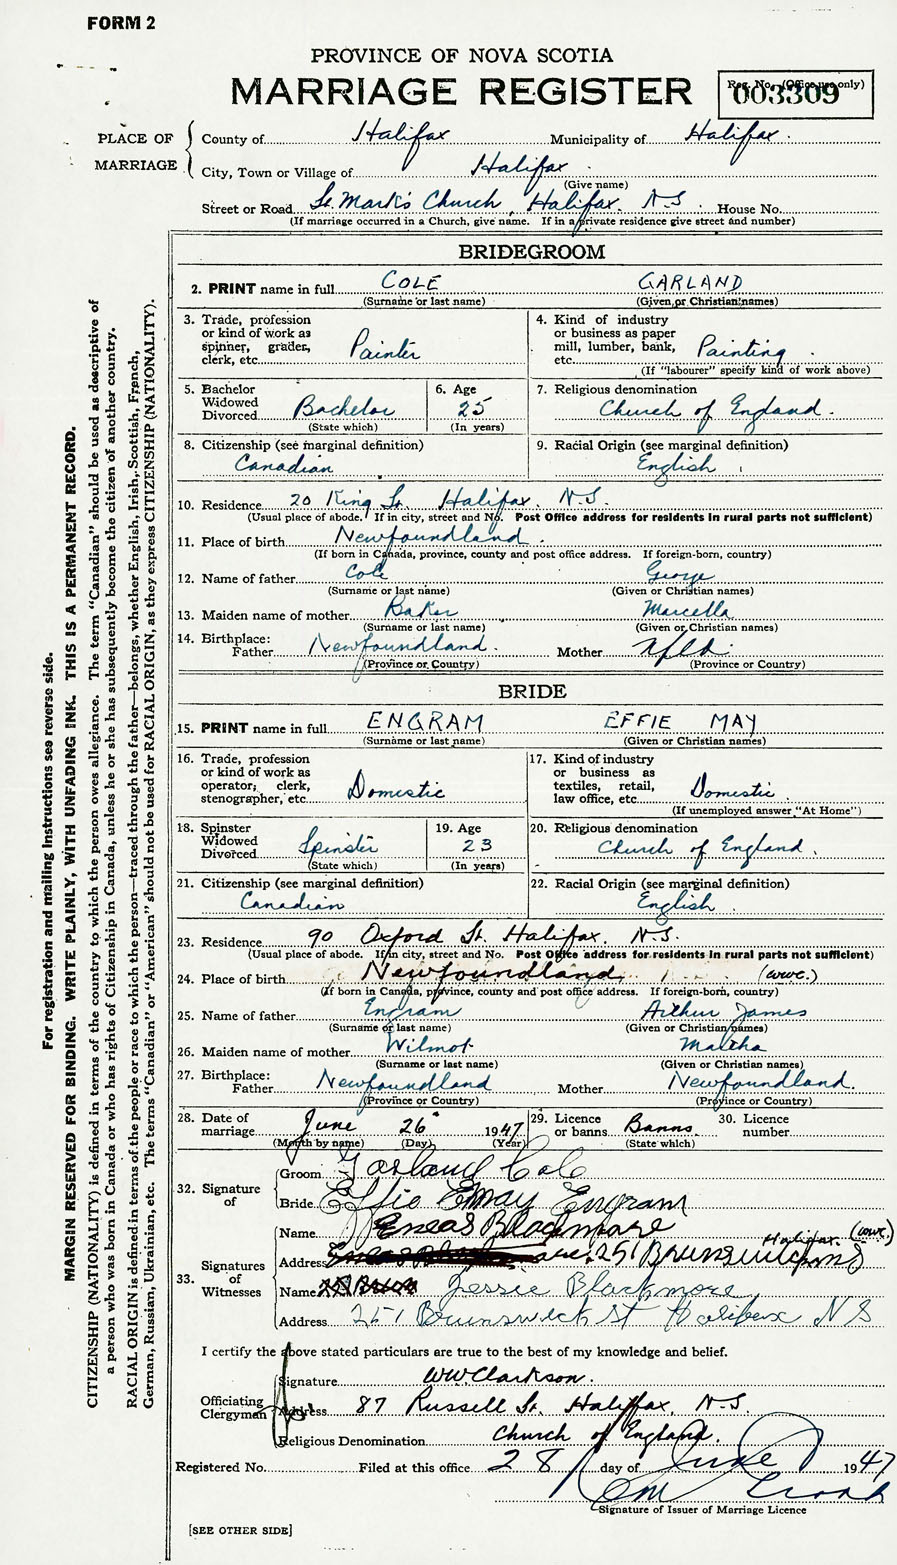 FORM 2
PROVINCE OF NOVA SCOTIA
MARRIAGE REGISTER
Reg. No. (Office use only)
003309
PLACE OF MARRIAGE
County of Halifax Municipality of Halifax.
City, Town or Village of Halifax.
(Give name)
Street or Road St. Mark's Church, Halifax. N.S. House No.
(If marriage occurred in a Church, give name. If in a private residence give street and number)
BRIDEGROOM
2. PRINT name in full COLE GARLAND
(Surname or last name) (Given or Christian names)
3. Trade, profession or kind of work as spinner, grader, clerk, etc. Painter
4. Kind of industry or business as paper mill, lumber, bank, etc. Painting.
(If "labourer" specify kind of work above)
5. Bachelor Widowed Divorced Bachelor
(State which)
6. Age 25
(In years)
7. Religious denomination
Church of England.
8. Citizenship (see marginal definition)
Canadian
9. Racial Origin (see marginal definition)
English
10. Residence 20 King St. Halifax. N.S.
(Usual place of abode. If in city, street and No. Post Office address for residents in rural parts not sufficient)
11. Place of birth Newfoundland.
(If born in Canada, province, county and post office address. If foreign-born, country)
12. Name of father Cole George
(Surname or last name) (Given or Christian names)
13. Maiden name of mother Baker Marcella
(Surname or last name) (Given or Christian names)
14. Birthplace: Father Newfoundland. Mother Nfld.
(Province or Country) (Province or Country)
BRIDE
15. PRINT name in full ENGRAM EFFIE MAY
(Surname or last name) (Given or Christian names)
16. Trade, profession or kind of work as operator, clerk, stenographer, etc. Domestic
17. Kind of industry or business as textiles, retail, law office, etc. Domestic.
(If unemployed answer "At Home")
18. Spinster Widowed Divorced Spinster
(State which)
19. Age 23
(In years)
20. Religious denomination
Church of England.
21. Citizenship (see marginal definition)
Canadian
22. Racial Origin (see marginal definition)
English.
23. Residence 90 Oxford St. Halifax. N.S.
(Usual place of abode. If in city, street and No. Post Office address for residents in rural parts not sufficient)
24. Place of birth Newfoundland. (wwc.)
(If born in Canada, province, county and post office address. If foreign-born, country)
25. Name of father Engram Arthur James
(Surname or last name) (Given or Christian names)
26. Maiden name of mother Wilmot Martha
(Surname or last name) (Given or Christian names)
27. Birthplace: Father Newfoundland Mother Newfoundland.
(Province or Country) (Province or Country)
28. Date of marriage June 26 1947
(Month by name) (Day) (Year)
29. Licence or banns Banns.
(State which)
30. Licence number
32. Signature of
Groom Garland Cole
Bride Effie May Engram
33. Signatures of Witnesses
Name Eneas Blackmore
Halifax. (wwc.)
Address 251 Brunswick NS
Name Jessie Blackmore
Address 251 Brunswick St Halifax N S
I certify the above stated particulars are true to the best of my knowledge and belief.
Officiating Clergyman
Signature WW Clarkson.
Address 87 Russell St. Halifax. N.S.
Religious Denomination Church of England.
Registered No. Filed at this office 28 day of June 1947
Signature of Issuer of Marriage Licence
[SEE OTHER SIDE]
For registration and mailing instructions see reverse side.
MARGIN RESERVED FOR BINDING. WRITE PLAINLY, WITH UNFADING INK. THIS IS A PERMANENT RECORD.
CITIZENSHIP (NATIONALITY) is defined in terms of the country to which the person owes allegiance. The term "Canadian" should be used as descriptive of
a person who was born in Canada or who has rights of Citizenship in Canada, unless he or she has subsequently become the citizen of another country.
RACIAL ORIGIN is defined in terms of the people or race to which the person—traced through the father—belongs, whether English, Irish, Scottish, French,
German, Russian, Ukrainian, etc. The terms "Canadian" or "American" should not be used for RACIAL ORIGIN, as they express CITIZENSHIP (NATIONALITY).